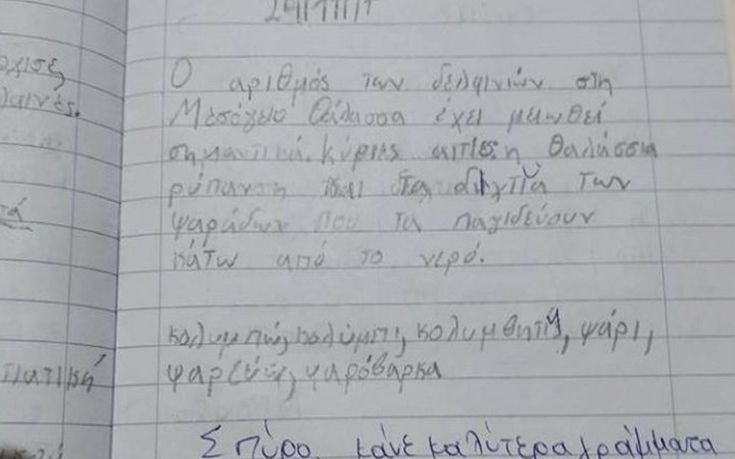 24/11/1
οχισε
λαινές.
Ο αριθμός των δελφινιών στη
Μεσόγειο θάλασσα έχει μειωθεί
σημαντικά. Κύριες αιτίες η θαλάσσια
ρύπανση και τα διχτυα των
ψαράδων που τα παγιδεύουν
κάτω από το νερό.
τά
κολυμπώ, κολύμπι, κολυμβητής, ψάρι,
ψαρεύω, ψαρόβαρκα
τιατική
Σπύρο κάνε καλύτερα γράμματα